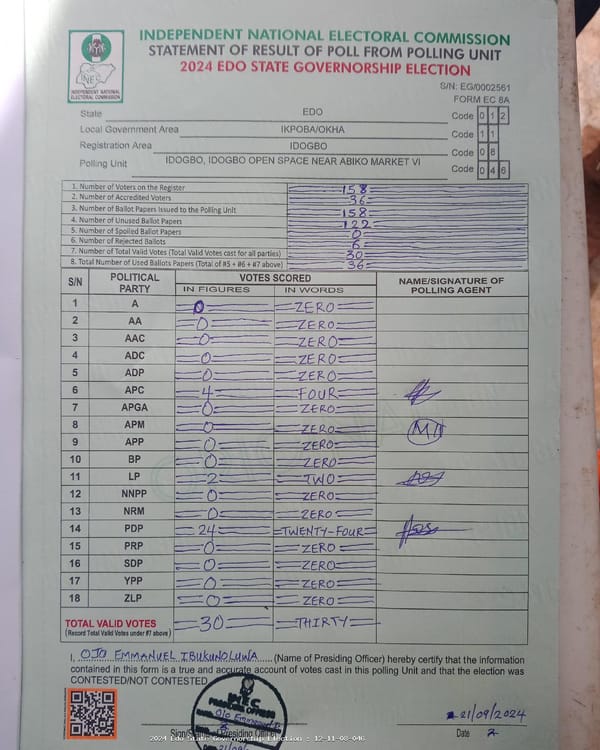 INDEPENDENT NATIONAL ELECTORAL COMMISSION
STATEMENT OF RESULT OF POLL FROM POLLING UNIT
2024 EDO STATE GOVERNORSHIP ELECTION
INEC
INDEPENDENT NATIONAL
ELECTORAL COMMISSION
S/N: EG/0002561
FORM EC 8A
State EDO Code 0 1 2
Local Government Area IKPOBA/OKHA Code 1 1
Registration Area IDOGBO Code 0 8
Polling Unit IDOGBO, IDOGBO OPEN SPACE NEAR ABIKO MARKET VI Code 0 4 6
1. Number of Voters on the Register 158
2. Number of Accredited Voters 36
3. Number of Ballot Papers Issued to the Polling Unit 158
4. Number of Unused Ballot Papers 122
5. Number of Spoiled Ballot Papers 0
6. Number of Rejected Ballots 6
7. Number of Total Valid Votes (Total Valid Votes cast for all parties) 30
8. Total Number of Used Ballots Papers (Total of #5 + #6 + #7 above) 36
S/N POLITICAL PARTY VOTES SCORED NAME/SIGNATURE OF POLLING AGENT
IN FIGURES IN WORDS
1 A 0 ZERO
2 AA 0 ZERO
3 AAC 0 ZERO
4 ADC 0 ZERO
5 ADP 0 ZERO
6 APC 4 FOUR
7 APGA 0 ZERO
8 APM 0 ZERO
9 APP 0 ZERO
10 BP 0 ZERO
11 LP 2 TWO
12 NNPP 0 ZERO
13 NRM 0 ZERO
14 PDP 24 TWENTY-FOUR
15 PRP 0 ZERO
16 SDP 0 ZERO
17 YPP 0 ZERO
18 ZLP 0 ZERO
TOTAL VALID VOTES 30 THIRTY
(Record Total Valid Votes under #7 above)
I, OJO EMMANUEL IBUKUNOLUWA (Name of Presiding Officer) hereby certify that the information
contained in this form is a true and accurate account of votes cast in this polling Unit and that the election was
CONTESTED/NOT CONTESTED.
INEC
PRESIDING OFFICER
21/09/2024
Date
2024 Edo State Governorship Election : 12-11-08-046